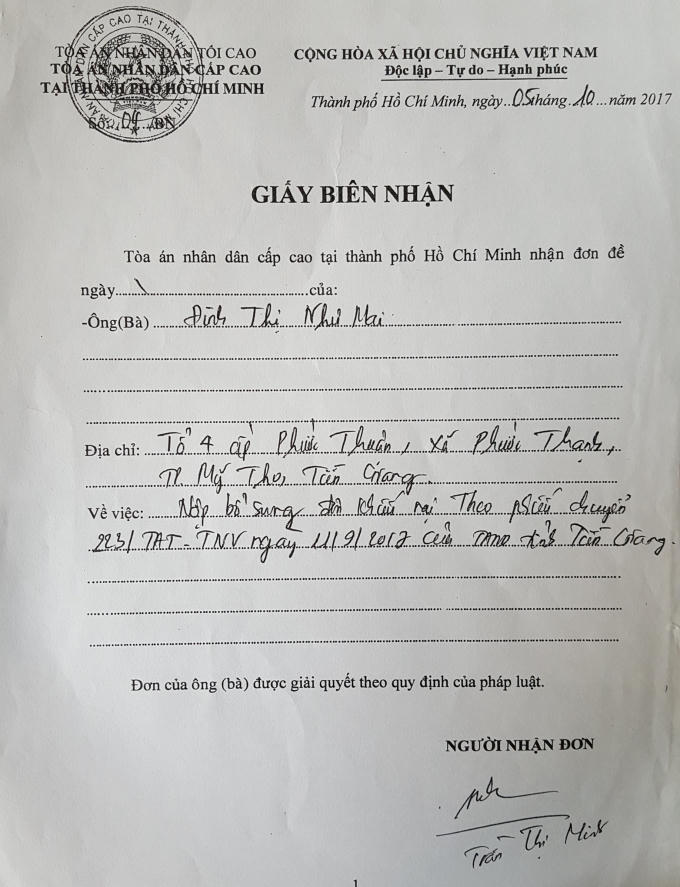 TÒA ÁN NHÂN DÂN TỐI CAO
TÒA ÁN NHÂN DÂN CẤP CAO
TẠI THÀNH PHỐ HỒ CHÍ MINH
CỘNG HÒA XÃ HỘI CHỦ NGHĨA VIỆT NAM
Độc lập – Tự do – Hạnh phúc
Thành phố Hồ Chí Minh, ngày 05 tháng 10 năm 2017
GIẤY BIÊN NHẬN
Tòa án nhân dân cấp cao tại thành phố Hồ Chí Minh nhận đơn đề
ngày.......của:
-Ông(Bà) Đinh Thị Như Mai
Địa chỉ: Tổ 4 ấp Phước Thuận, xã Phước Thạnh,
TP. Mỹ Tho, Tiền Giang.
Về việc: Nộp bổ sung đơn khiếu nại Theo phiếu chuyển
223/TAT-TNV ngày 11/9/2017 của TAND tỉnh Tiền Giang.
Đơn của ông (bà) được giải quyết theo quy định của pháp luật.
NGƯỜI NHẬN ĐƠN
Trần Thị Minh
1